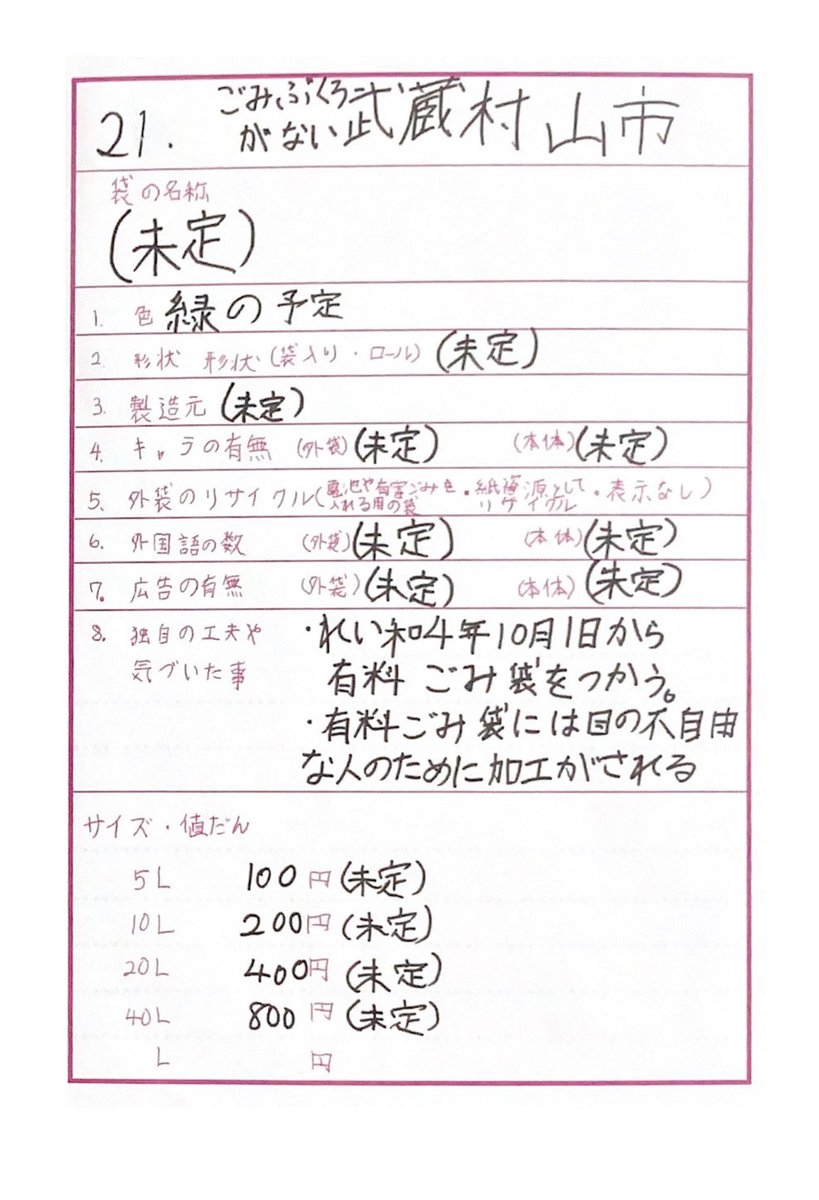 ごみぶくろ
21. がない武蔵村山市
袋の名称
(未定)
1. 色 緑の予定
2. 形状 形状(袋入り・ロール) (未定)
3. 製造元 (未定)
4. キャラの有無 (外袋)(未定) (本体)(未定)
5. 外袋のリサイクル(電池や有害ごみを入れる用の袋・紙資源としてリサイクル・表示なし)
6. 外国語の数 (外袋)(未定) (本体)(未定)
7. 広告の有無 (外袋)(未定) (本体)(未定)
8. 独自の工夫や ・れい和4年10月1日から
気づいた事 有料ごみ袋をつかう。
・有料ごみ袋には目の不自由
な人のために加工がされる
サイズ・値だん
5L 100円(未定)
10L 200円(未定)
20L 400円(未定)
40L 800円(未定)
L 円